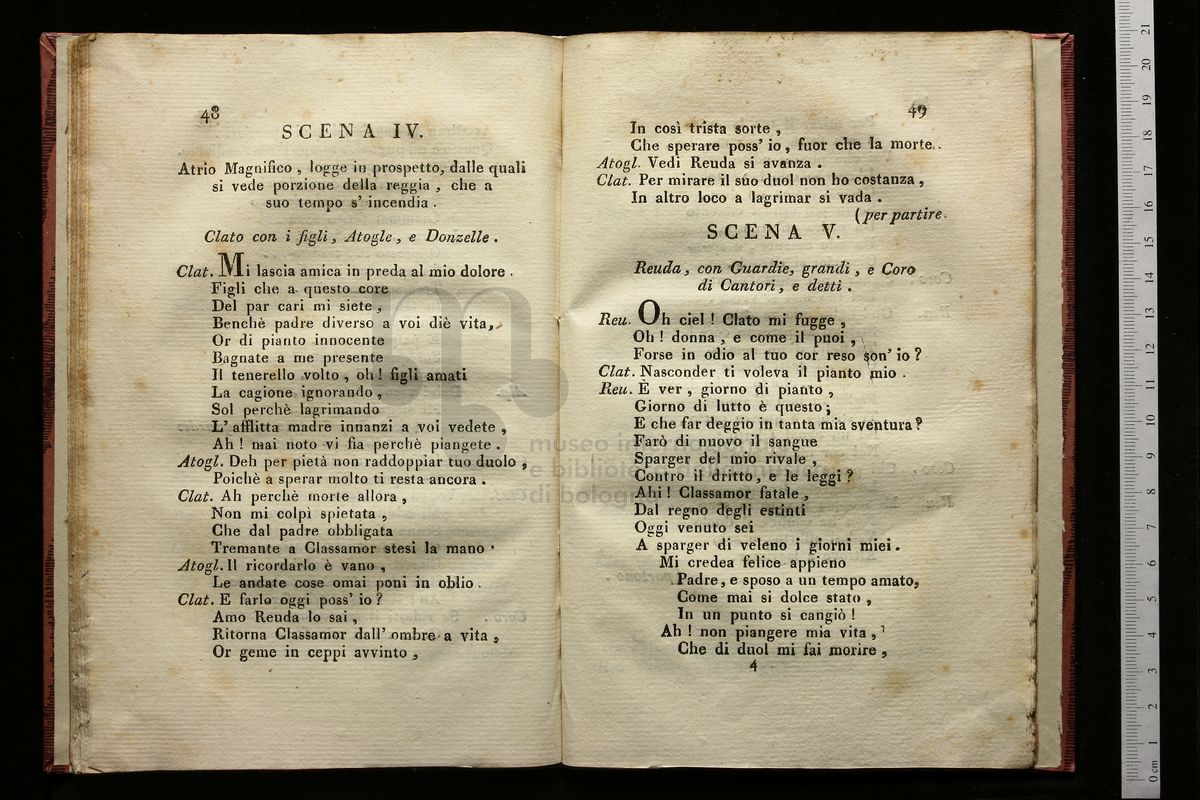 48
SCENA IV.
Atrio Magnifico , logge in prospetto, dalle quali
si vede porzione della reggia , che a
suo tempo s' incendia .
Clato con i figli , Atogle , e Donzelle .
Clat. Mi lascia amica in preda al mio dolore .
Figli che a questo core
Del par cari mi siete ,
Benchè padre diverso a voi diè vita,
Or di pianto innocente
Bagnate a me presente
Il tenerello volto , oh ! figli amati
La cagione ignorando ,
Sol perchè lagrimando
L' afflitta madre innanzi a voi vedete ,
Ah ! mai noto vi fia perchè piangete .
Atogl. Deh per pietà non raddoppiar tuo duolo ,
Poichè a sperar molto ti resta ancora .
Clat. Ah perchè morte allora ,
Non mi colpì spietata ,
Che dal padre obbligata
Tremante a Classamor stesi la mano .
Atogl. Il ricordarlo è vano ,
Le andate cose omai poni in oblio .
Clat. E farlo oggi poss' io ?
Amo Reuda lo sai ,
Ritorna Classamor dall' ombre a vita ,
Or geme in ceppi avvinto ,
49
In così trista sorte ,
Che sperare poss' io , fuor che la morte .
Atogl. Vedi Reuda si avanza .
Clat. Per mirare il suo duol non ho costanza ,
In altro loco a lagrimar si vada .
( per partire .
SCENA V.
Reuda , con Guardie, grandi , e Coro
di Cantori , e detti .
Reu. Oh ciel ! Clato mi fugge ,
Oh ! donna , e come il puoi ,
Forse in odio al tuo cor reso son' io ?
Clat. Nasconder ti voleva il pianto mio .
Reu. È ver , giorno di pianto ,
Giorno di lutto è questo ;
E che far deggio in tanta mia sventura ?
Farò di nuovo il sangue
Sparger del mio rivale ,
Contro il dritto , e le leggi ?
Ahi ! Classamor fatale ,
Dal regno degli estinti
Oggi venuto sei
A sparger di veleno i giorni miei .
Mi credea felice appieno
Padre , e sposo a un tempo amato,
Come mai si dolce stato ,
In un punto si cangiò !
Ah ! non piangere mia vita ,
Che di duol mi fai morire ,
4